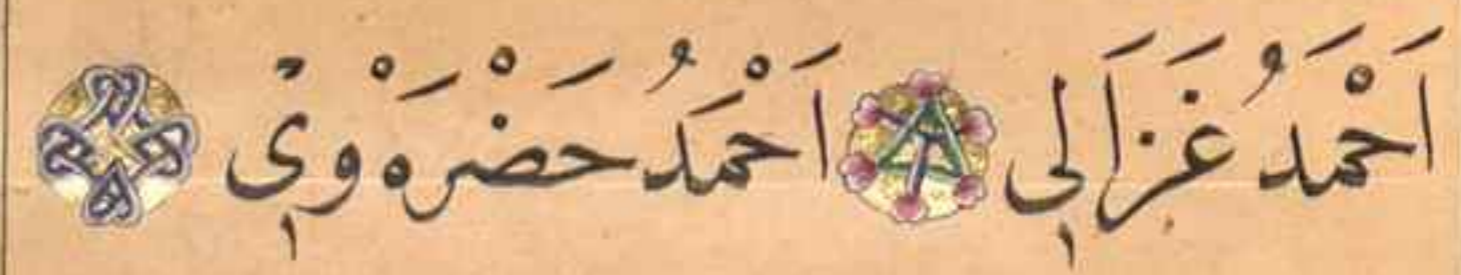 اَحْمَدُ غَزَالِي اَحْمَدُ حَضْرَهْ وِيْ